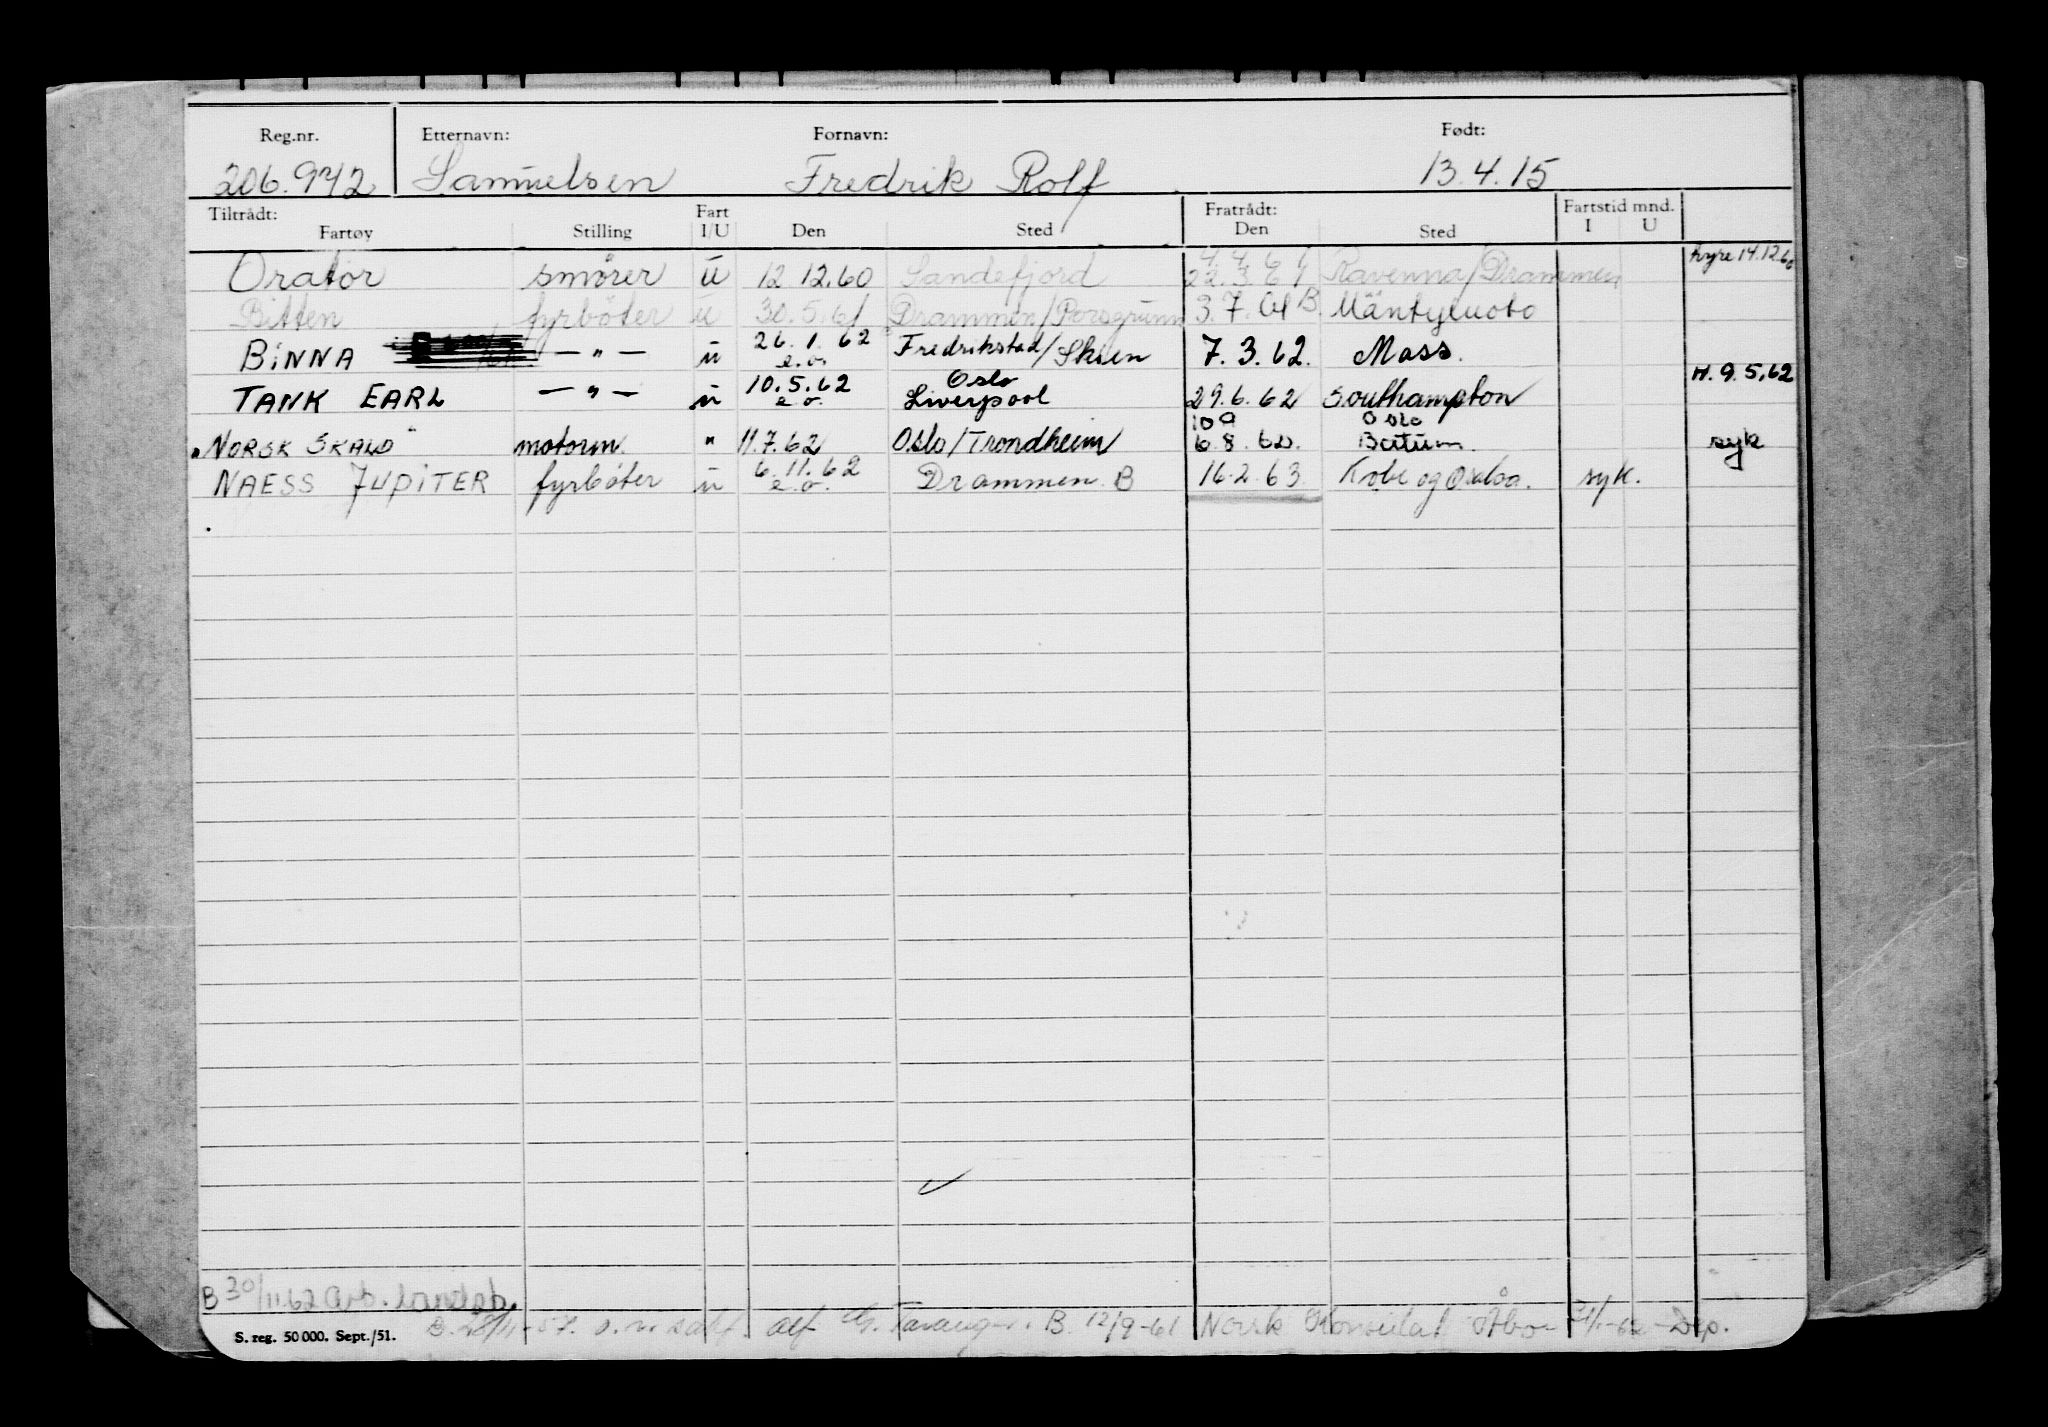 Reg.nr. Etternavn: Fornavn: Født:
206.942 Samuelsen Fredrik Rolf 13.4.15
Tiltrådt: Fratrådt: Fartstid mnd.
Fartøy Stilling Fart I/U Den Sted Den Sted I U
4.4.61 hyre 14.12.60
Orator smører u 12 12.60 Sandefjord 22.3.61 Ravenna/Drammen
Bitten fyrbøter u 30.5.61 Drammen/Porsgrunn 3.7.61 B. Mäntyluoto
BINNA — " — u 26.1.62 e.o. Fredrikstad/Skien 7.3.62. Moss.
10.5.62 Oslo H.9.5.62
TANK EARL — " — u e.o. Liverpool 29.6.62 Southampton
109 Oslo
"NORSK SKALD" motorm. " 11.7.62 Oslo/Trondheim 6.8.62. Batum. syk
NAESS JUPITER fyrbøter u 6.11.62 e.o. Drammen. B 16.2.63. Kobe og syk.
B 30/11.62 Arb.
S. reg. 50 000. Sept./51. B. 28/11-57. alf G. B 12/9-61 Norsk Konsulat Åbo - -62 - Dep.